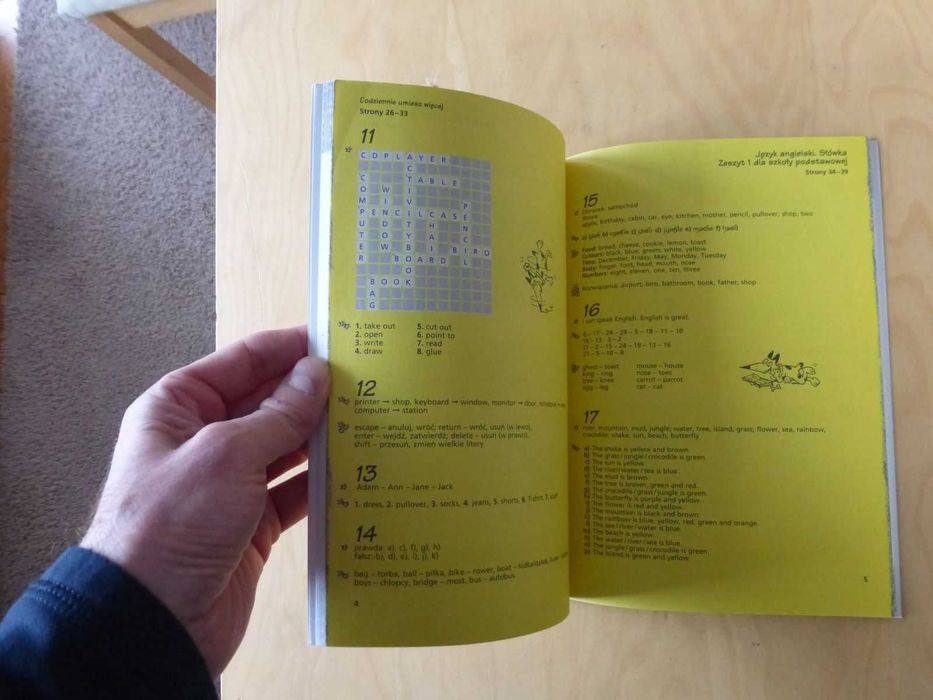 Codziennie umiesz więcej
Strony 26–33
11
CDPLAYER
C
C T
O TABLE
M W I
P I V P
PENCILCASE
U D T H N
T O Y A C
E W B I BIRO
R BOARD L
O
BOOK
A
G
1. take out 5. cut out
2. open 6. point to
3. write 7. read
4. draw 8. glue
12
printer → shop, keyboard → window, monitor → door, notebook →
computer → station
escape – anuluj, wróć; return – wróć, usuń (w lewo),
enter – wejdź, zatwierdź; delete – usuń (w prawo),
shift – przesuń, zmień wielkie litery
13
Adam – Ann – Jane – Jack
1. dress, 2. pullover, 3. socks, 4. jeans, 5. shorts, 6. T-shirt, 7. scarf
14
prawda: a), c), f), g), h)
fałsz: b), d), e), i), j), k)
bag – torba, ball – piłka, bike – rower, boat –
boys – chłopcy, bridge – most, bus – autobus
4
Język angielski. Słówka
Zeszyt 1 dla szkoły podstawowej
Strony 34–39
15
Obrazek: samochód
Słowa:
apple, birthday, cabin, car, eye, kitchen, mother, pencil, pullover, shop, two
a) glue b) cookie c) chair d) jungle e) media f) hall
Food: bread, cheese, cookie, lemon, toast
Colours: black, blue, green, white, yellow
Time: December, Friday, May, Monday, Tuesday
Body: finger, foot, head, mouth, nose
Numbers: eight, eleven, one, ten, three
Rozwiązania: airport, biro, bathroom, book, father, shop
16
I can speak English. English is great.
6 – 17 – 24 – 24 – 5 – 18 – 11 – 10
19 – 13 3 – 2
11 – 2 – 15 – 24 – 19 – 13 – 16
21 – 5 – 10 – 8
ghost – toast mouse – house
king – ring nose – toes
tree – knee carrot – parrot
egg – leg cat – rat
17
river, mountain, mud, jungle; water, tree, island, grass; flower, sea, rainbow,
crocodile; snake, sun, beach, butterfly
a) The snake is yellow and brown.
b) The grass/jungle/crocodile is green.
c) The sun is yellow.
d) The river/water/sea is blue.
e) The mud is brown.
f) The tree is brown, green and red.
g) The crocodile/grass/jungle is green.
h) The butterfly is purple and yellow.
i) The flower is red and yellow.
j) The mountain is black and brown.
k) The rainbow is blue, yellow, red, green and orange.
l) The sea/river/water is blue.
m) The beach is yellow.
n) The water/river/sea is blue.
o) The jungle/grass/crocodile is green.
p) The island is green and yellow.
5